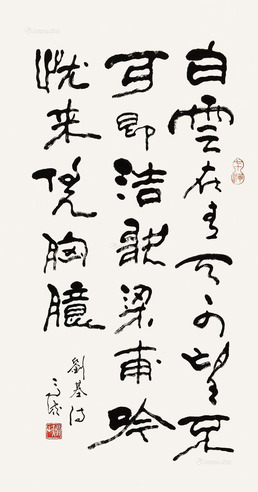 白雲在青天可望不
可即浩歌梁甫吟
忧来胸臆
劉基诗